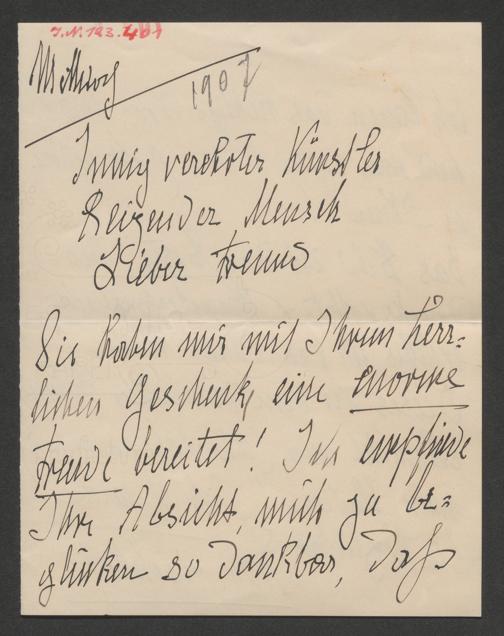 I.N. 123.481
Mittwoch
1907
Innig verehrter Künstler
Reizender Mensch
Lieber Freund
Sie haben mir mit Ihrem herr-
lichen Geschenk, eine enorme
Freude bereitet! Ich empfinde
Ihre Absicht, mich zu be-
glücken so dankbar, dass